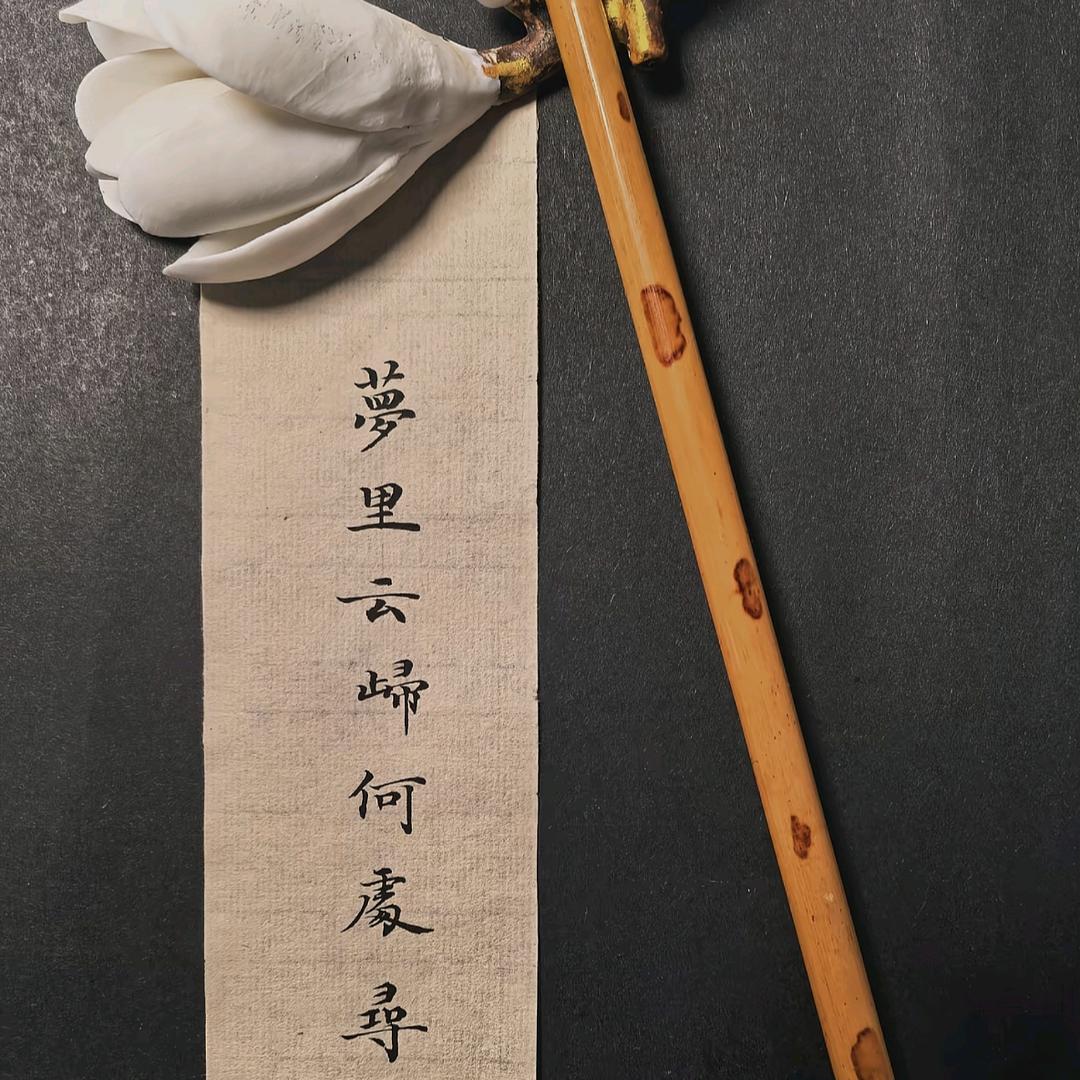 夢里云歸何處尋